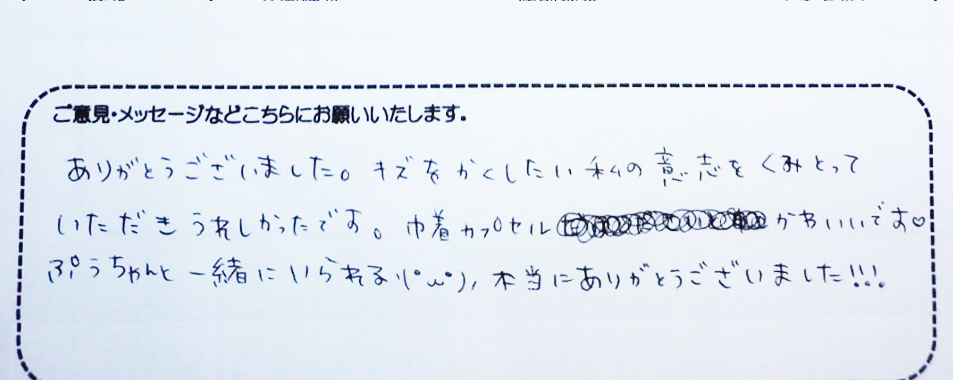 ご意見・メッセージなどこちらにお願いいたします。
ありがとうございました。キズをかくしたい私の意志をくみとって
いただきうれしかったです。巾着カプセルかわいいです♡
ぷうちゃんと一緒にいられる!(°ω°)!本当にありがとうございました!!!